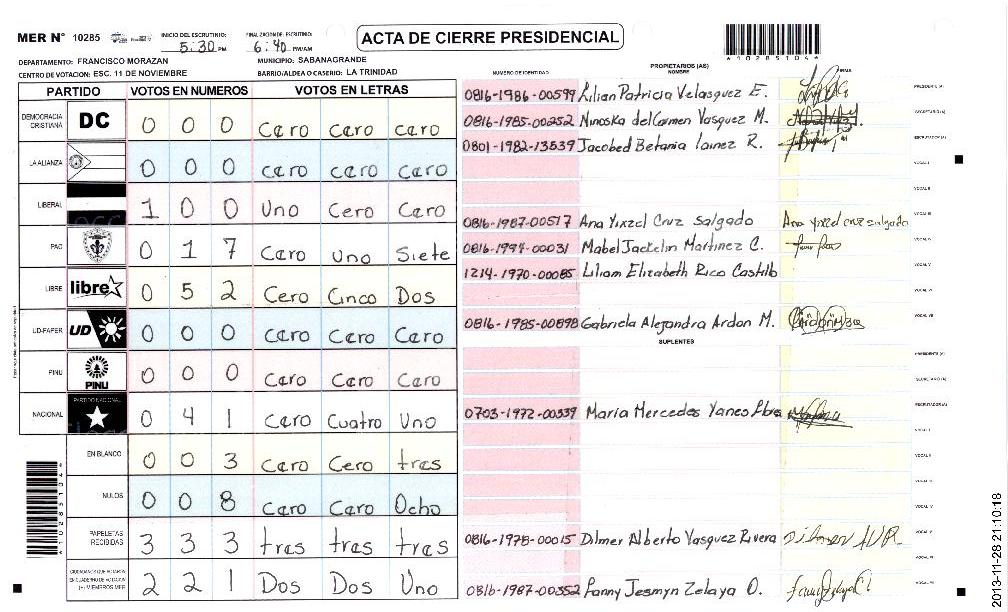 MER N° 10285
INICIO DEL ESCRUTINIO: 5:30 PM
FINALIZACION DE ESCRUTINIO: 6:40 PM/AM
ACTA DE CIERRE PRESIDENCIAL
*10285104*
DEPARTAMENTO: FRANCISCO MORAZAN
MUNICIPIO: SABANAGRANDE
CENTRO DE VOTACION: ESC. 11 DE NOVIEMBRE
BARRIO/ALDEA O CASERIO: LA TRINIDAD
PARTIDO VOTOS EN NUMEROS VOTOS EN LETRAS
DEMOCRACIA CRISTIANA DC 0 0 0 Caro Caro Caro
LA ALIANZA 0 0 0 Caro Caro Caro
LIBERAL 1 0 0 Uno Cero Caro
PAC 0 1 7 Caro Uno Siete
LIBRE libre 0 5 2 Cero Cinco Dos
UD-FAPER UD 0 0 0 Caro Caro Caro
PINU PINU 0 0 0 Caro Caro Caro
NACIONAL PARTIDO NACIONAL 0 4 1 Caro Cuatro Uno
EN BLANCO 0 0 3 Caro Cero tres
NULOS 0 0 8 Caro Caro Ocho
PAPELETAS RECIBIDAS 3 3 3 tres tres tres
CIUDADANOS QUE VOTARON EN CUADERNO DE VOTACION (+) MIEMBROS MER 2 2 1 Dos Dos Uno
*10285104*
PROPIETARIOS (AS)
NUMERO DE IDENTIDAD NOMBRE FIRMA
0816-1986-00599 Lilian Patricia Velasquez E. PRESIDENTE (A)
0816-1985-00252 Ninoska del Carmen Vasquez M. SECRETARIO (A)
0801-1982-13539 Jacobed Betania Lainez R. ESCRUTADOR (A)
VOCAL I
VOCAL II
0816-1987-00517 Ana Yixzel Cruz Salgado Ana Yixzel cruz salgado VOCAL III
0816-1994-00031 Mabel Jackelin Martinez C. VOCAL IV
1214-1970-00085 Liliam Elizabeth Rico Castillo VOCAL V
VOCAL VI
0816-1985-00898 Gabriela Alejandra Ardon M. VOCAL VII
SUPLENTES
PRESIDENTE (A)
SECRETARIO (A)
0703-1972-00339 Maria Mercedes Yanes ESCRUTADOR (A)
VOCAL I
VOCAL II
VOCAL III
VOCAL IV
0816-1978-00015 Dilmer Alberto Vasquez Rivera VOCAL V
VOCAL VI
0816-1987-00352 Fanny Jesmyn Zelaya O. VOCAL VII
2013-11-28 21:10:18